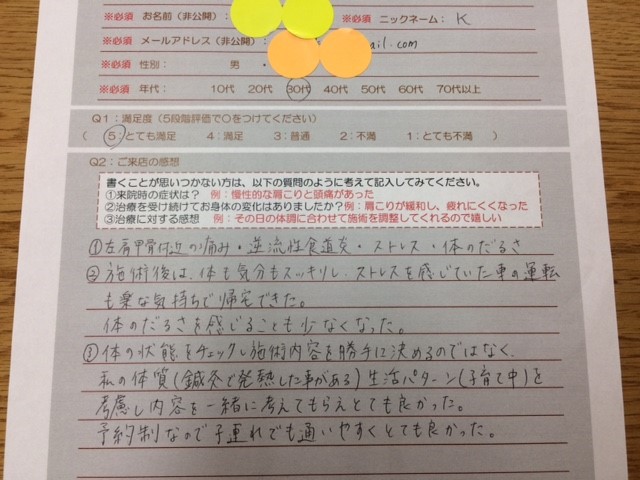 ※必須 お名前（非公開） ※必須 ニックネーム： K
※必須 メールアドレス（非公開）： ail.com
※必須 性別： 男 ・
※必須 年代： 10代 20代 30代 40代 50代 60代 70代以上
Q1：満足度（5段階評価で○をつけてください）
（ 5：とても満足 4：満足 3：普通 2：不満 1：とても不満 ）
Q2：ご来店の感想
書くことが思いつかない方は、以下の質問のように考えて記入してみてください。
①来院時の症状は？ 例：慢性的な肩こりと頭痛があった
②治療を受け続けてお身体の変化はありましたか？例：肩こりが緩和し、疲れにくくなった
③治療に対する感想 例：その日の体調に合わせて施術を調整してくれるので嬉しい
①左肩甲骨付近の痛み・逆流性食道炎・ストレス・体のだるさ
②施術後は、体も気分もスッキリし、ストレスを感じていた車の運転
も楽な気持ちで帰宅できた。
体のだるさを感じることも少なくなった。
③体の状態をチェックし施術内容を勝手に決めるのではなく、
私の体質（鍼灸で発熱した事がある）生活パターン（子育て中）を
考慮し内容を一緒に考えてもらえとても良かった。
予約制なので子連れでも通いやすくとても良かった。